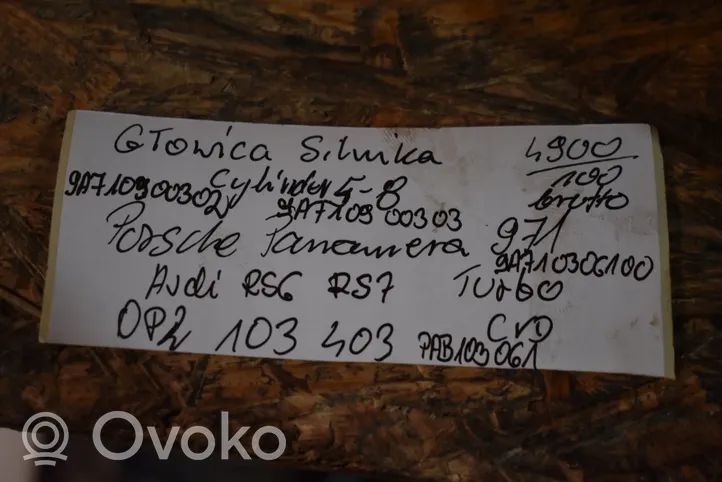 Głowica Silnika 4900
9A710900302 Cylinder 5-8 100
9A710900303 brutto
Porsche Panamera 971
9A710306100
Audi RS6 RS7 Turbo
0P2 103 403 PAB103061 CVD
Ovoko